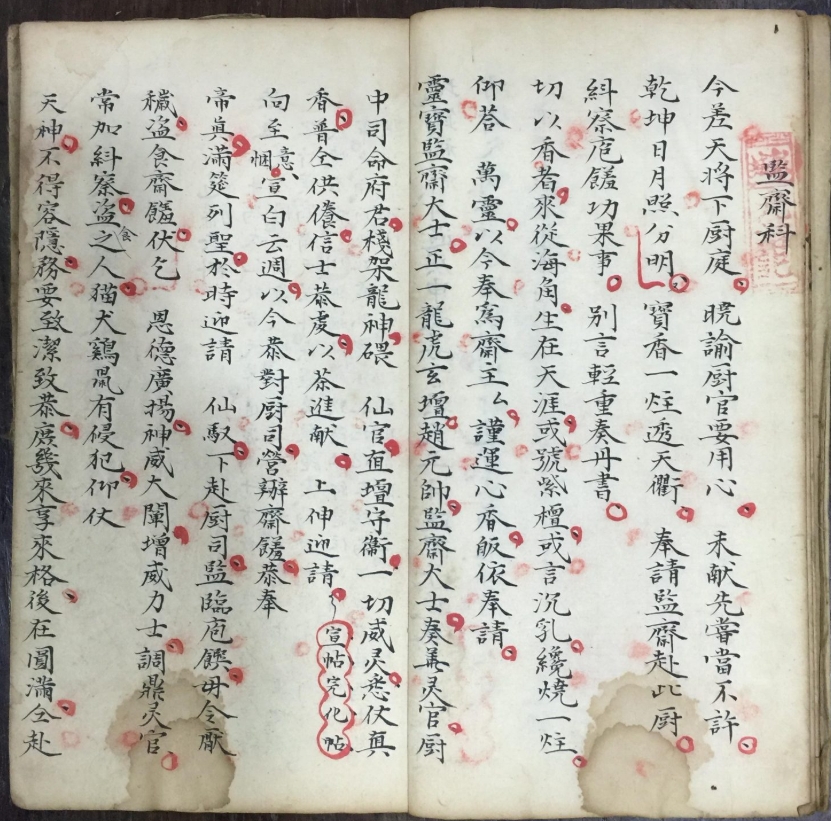 監齋科
今差天將下厨庭 曉諭厨官要用心 未献先嘗當不許
乾坤日月照分明 寶香一炷透天衢 奉請監齋赴此厨
糾察庖饈功果事 别言輕重奏丹書
切以香者來從海角生在天涯或號紫檀或言沉乳纔燒一炷
仰荅 萬靈以今奉爲齋主ム謹運心香皈依奉請
靈寶監齋大士正一龍虎玄壇趙元帥監齋大士奏善灵官厨
中司命府君棧架龍神碨 仙官直壇守衞一切威灵悉仗真
香普仝供養信士恭虔以茶進献 上伸迎請
宣帖完化帖
向至意悃宣白云週以今恭對厨司營辦齋饈恭奉
帝真滿筵列聖於時迎請 仙馭下赴厨司監臨庖饌毋令厭
穢盗食齋饈伏乞 恩德廣揚神威大闡增威力士調鼎灵官
常加糾察盗食之人猫犬鷄鼠有侵犯仰仗
天神不得容隱務要致潔致恭庶幾來享來格後在圓滿仝赴